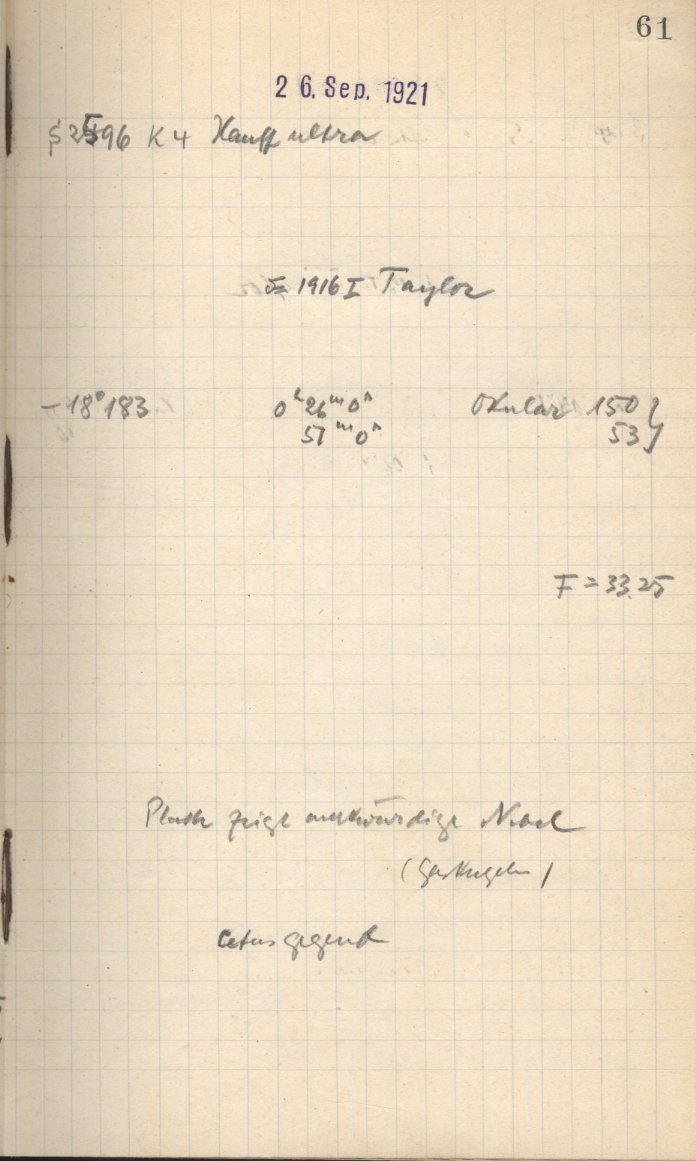 61
26. Sep. 1921
K4 Hauff ultra
1916 I Taylor
-18°183 0ʰ 26ᵐ 0ˢ Okular 150
57ᵐ 0ˢ 53
F = 33.25
Platte zeigt merkwürdige Nebel
(Gaskugeln)
Cetusgegend